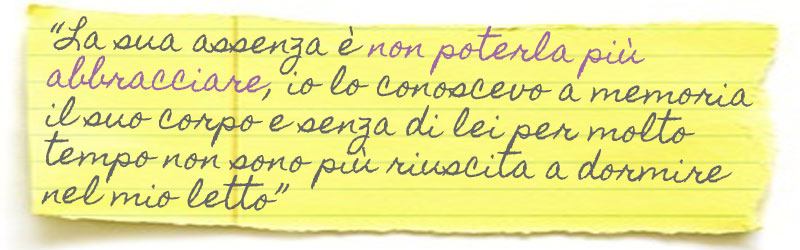 “La sua assenza è non poterla più
abbracciare, io lo conoscevo a memoria
il suo corpo e senza di lei per molto
tempo non sono più riuscita a dormire
nel mio letto”